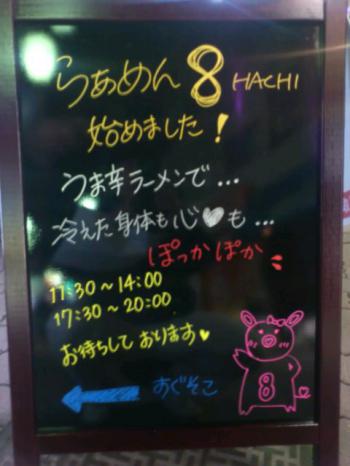 らぁめん 8 HACHI
始めました!
うま辛ラーメンで...
冷えた身体も心♥も...
ぽっかぽか
11:30〜14:00
17:30〜20:00
お待ちしております♥
← すぐそこ
8